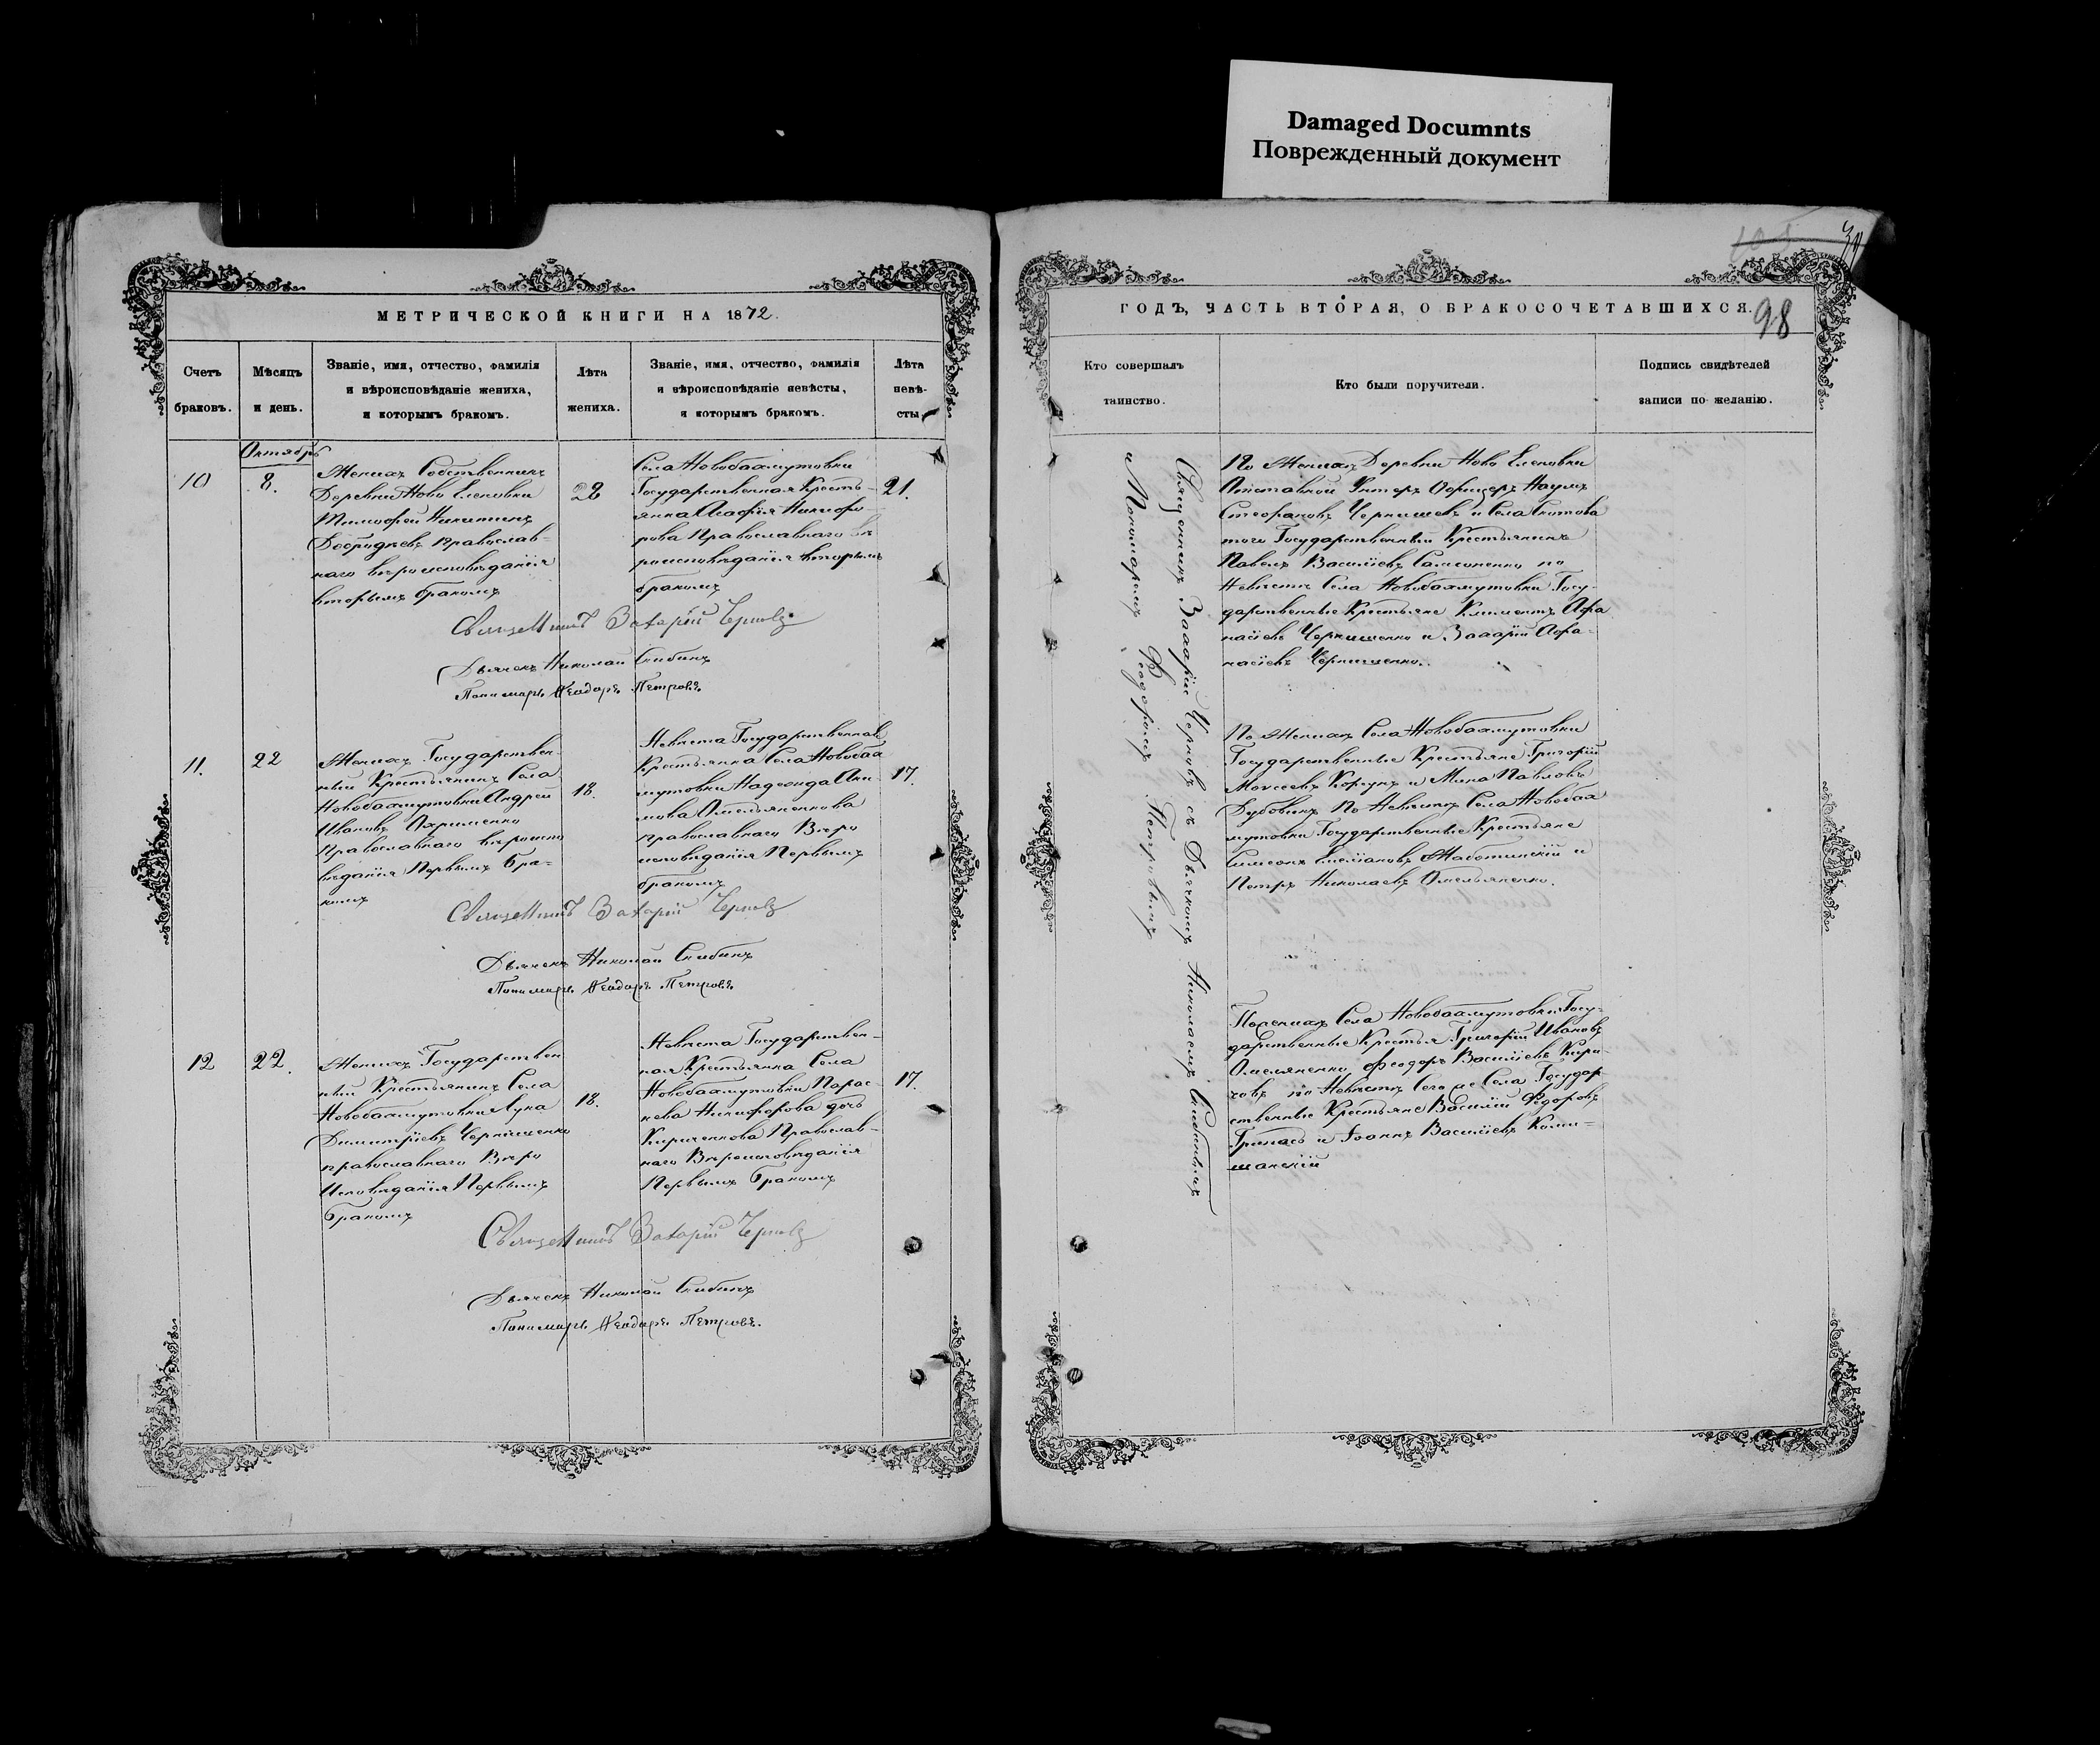 Damaged Documnts
Поврежденный документ
МЕТРИЧЕСКОЙ КНИГИ НА 1872.
Счетъ браковъ.
Мѣсяцъ и день.
Званіе, имя, отчество, фамилія
и вѣроисповѣданіе жениха,
и которымъ бракомъ.
Лѣта жениха.
Званіе, имя, отчество, фамилія
и вѣроисповѣданіе невѣсты,
и которымъ бракомъ.
Лѣта невѣ-
сты
Октябрь
10
8.
Женихъ Собственникъ
Деревни Ново Еленовки
Тимофей Никитинъ
православ-
наго вѣроисповѣданія
вторымъ бракомъ
22
Села Новобахмутовки
Государственная Кресть-
янка Агафія Никифо-
рова Православнаго вѣ
роисповѣданія вторымъ
бракомъ
21.
Священникъ Захарій Черновъ
Дьячекъ Николай Скибинъ
Панамарь Феодоръ Петровъ
11.
22
Женихъ Государствен-
ный Крестьянинъ Села
Новобахмутовки Андрей
Ивановъ Охрименко
Православнаго вѣроиспо
вѣданія Первымъ бра-
комъ
18.
Невѣста Государственная
Крестьянка Села Новобах
мутовки Надежда Аки
мова Омельяненкова
православнаго Вѣро
исповѣданія Первымъ
бракомъ
17.
Священникъ Захарій Черновъ
Дьячекъ Николай Скибинъ
Панамарь Феодоръ Петровъ.
12
22.
Женихъ Государствен
ный Крестьянинъ Села
Новобахмутовки Лука
Димитріевъ Чернышенко
православнаго Вѣро
Исповѣданія Первымъ
бракомъ
18.
Невѣста Государствен-
ная Крестьянка Села
Новобахмутовки Парас-
кева Никифорова дочь
Кириченкова Православ-
наго Вѣроисповѣданія
Первымъ бракомъ
17.
Священникъ Захарій Черновъ
Дьячекъ Николай Скибинъ
Панамарь Феодоръ Петровъ.
ГОДЪ, ЧАСТЬ ВТОРАЯ, О БРАКОСОЧЕТАВШИХСЯ.
98
Кто совершалъ
таинство.
Кто были поручители.
Подпись свидѣтелей
записи по желанію.
Священникъ Захарій Черновъ съ Дьячкомъ Николаемъ Скибинымъ
и Пономаремъ Феодоромъ Петровымъ
По Женихѣ Деревни Ново Еленовки
Отставной Унтеръ Офицеръ Наумъ
Стефановъ Чернышевъ и Села
Государственный Крестьянинъ
Павелъ Василіевъ Самсоненко по
Невѣстѣ Села Новобахмутовки Госу-
дарственные Крестьяне Климентъ Афа
насіевъ Чернышенко и Захарій Афа-
насіевъ Чернышенко.
По Женихѣ Села Новобахмутовки
Государственные Крестьяне Григорій
Моисеевъ Коржъ и Мина Павловъ
Дубовикъ По Невѣстѣ Села Новобах
мутовки Государственные Крестьяне
Симеонъ Емеліановъ Жаботинскій и
Петръ Николаевъ Омельяненко.
По женихѣ Села Новобахмутовки Госу-
дарственные Крестья Григорій Ивановъ
Омельяненко Феодоръ Василіевъ Кири-
по Невѣстѣ Сего же Села Государ
ственные Крестьяне Василій Федоровъ
и Іоаннъ Василіевъ Коми-
шанскій